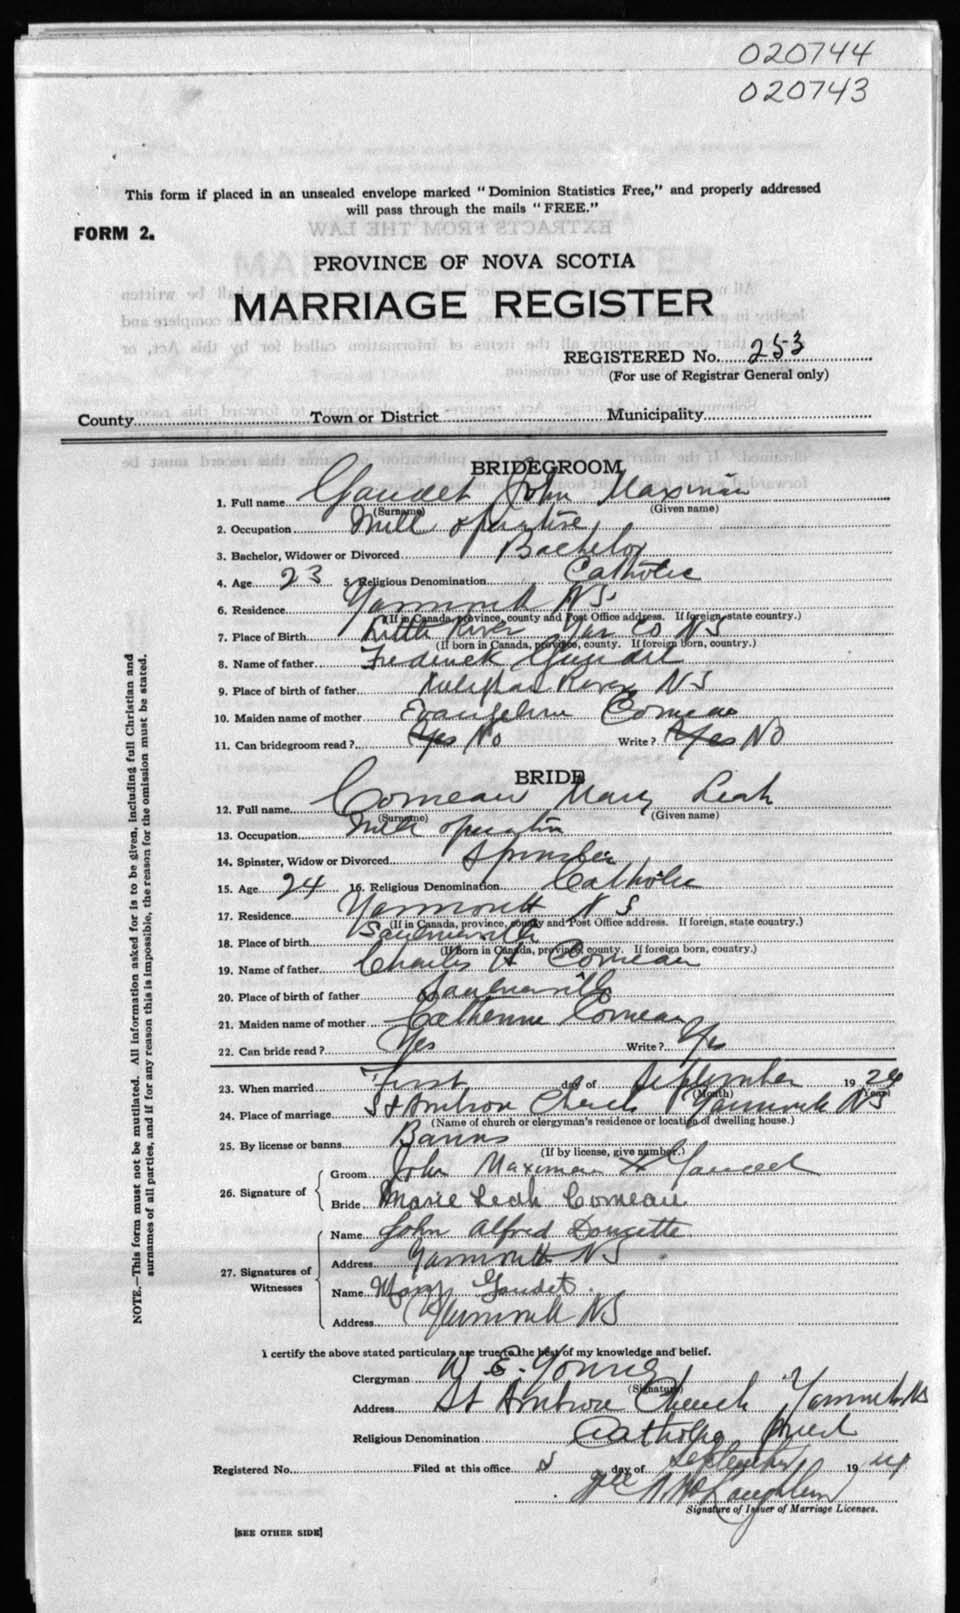 020744
020743
This form if placed in an unsealed envelope marked "Dominion Statistics Free," and properly addressed
will pass through the mails "FREE."
FORM 2.
PROVINCE OF NOVA SCOTIA
MARRIAGE REGISTER
REGISTERED No. 253
(For use of Registrar General only)
County Town or District Municipality
BRIDEGROOM
1. Full name Gaudet John Maximin
(Surname) (Given name)
2. Occupation Mill operative
3. Bachelor, Widower or Divorced Bachelor
4. Age 23 5. Religious Denomination Catholic
6. Residence Yarmouth NS
(If in Canada, province, county and Post Office address. If foreign, state country.)
7. Place of Birth Little River Yar Co NS
(If born in Canada, province, county. If foreign born, country.)
8. Name of father Frederick Gaudet
9. Place of birth of father River NS
10. Maiden name of mother Evangeline Comeau
11. Can bridegroom read? Yes No Write? Yes No
BRIDE
12. Full name Comeau Mary Leah
(Surname) (Given name)
13. Occupation Mill operative
14. Spinster, Widow or Divorced Spinster
15. Age 24 16. Religious Denomination Catholic
17. Residence Yarmouth N S
(If in Canada, province, county and Post Office address. If foreign, state country.)
18. Place of birth Saulnierville
(If born in Canada, province, county. If foreign born, country.)
19. Name of father Charles H Comeau
20. Place of birth of father Saulnierville
21. Maiden name of mother Catherine Comeau
22. Can bride read? Yes Write? Yes
23. When married First day of September 1924
(Month) (Year)
24. Place of marriage St Ambrose Church Yarmouth NS
(Name of church or clergyman's residence or location of dwelling house.)
25. By license or banns Banns
(If by license, give number.)
26. Signature of
Groom John Maximan Gaudet
Bride Marie Leah Comeau
27. Signatures of Witnesses
Name John Alfred Doucette
Address Yarmouth NS
Name Mary Gaudet
Address Yarmouth NS
I certify the above stated particulars are true to the best of my knowledge and belief.
Clergyman W. E. Young
(Signature)
Address St Ambrose Church Yarmouth NS
Religious Denomination Catholic Priest
Registered No. Filed at this office day of September 1924
McLaughlin
Signature of Issuer of Marriage Licenses.
[SEE OTHER SIDE]
NOTE.—This form must not be mutilated. All information asked for is to be given, including full Christian and
surnames of all parties, and if for any reason this is impossible, the reason for the omission must be stated.